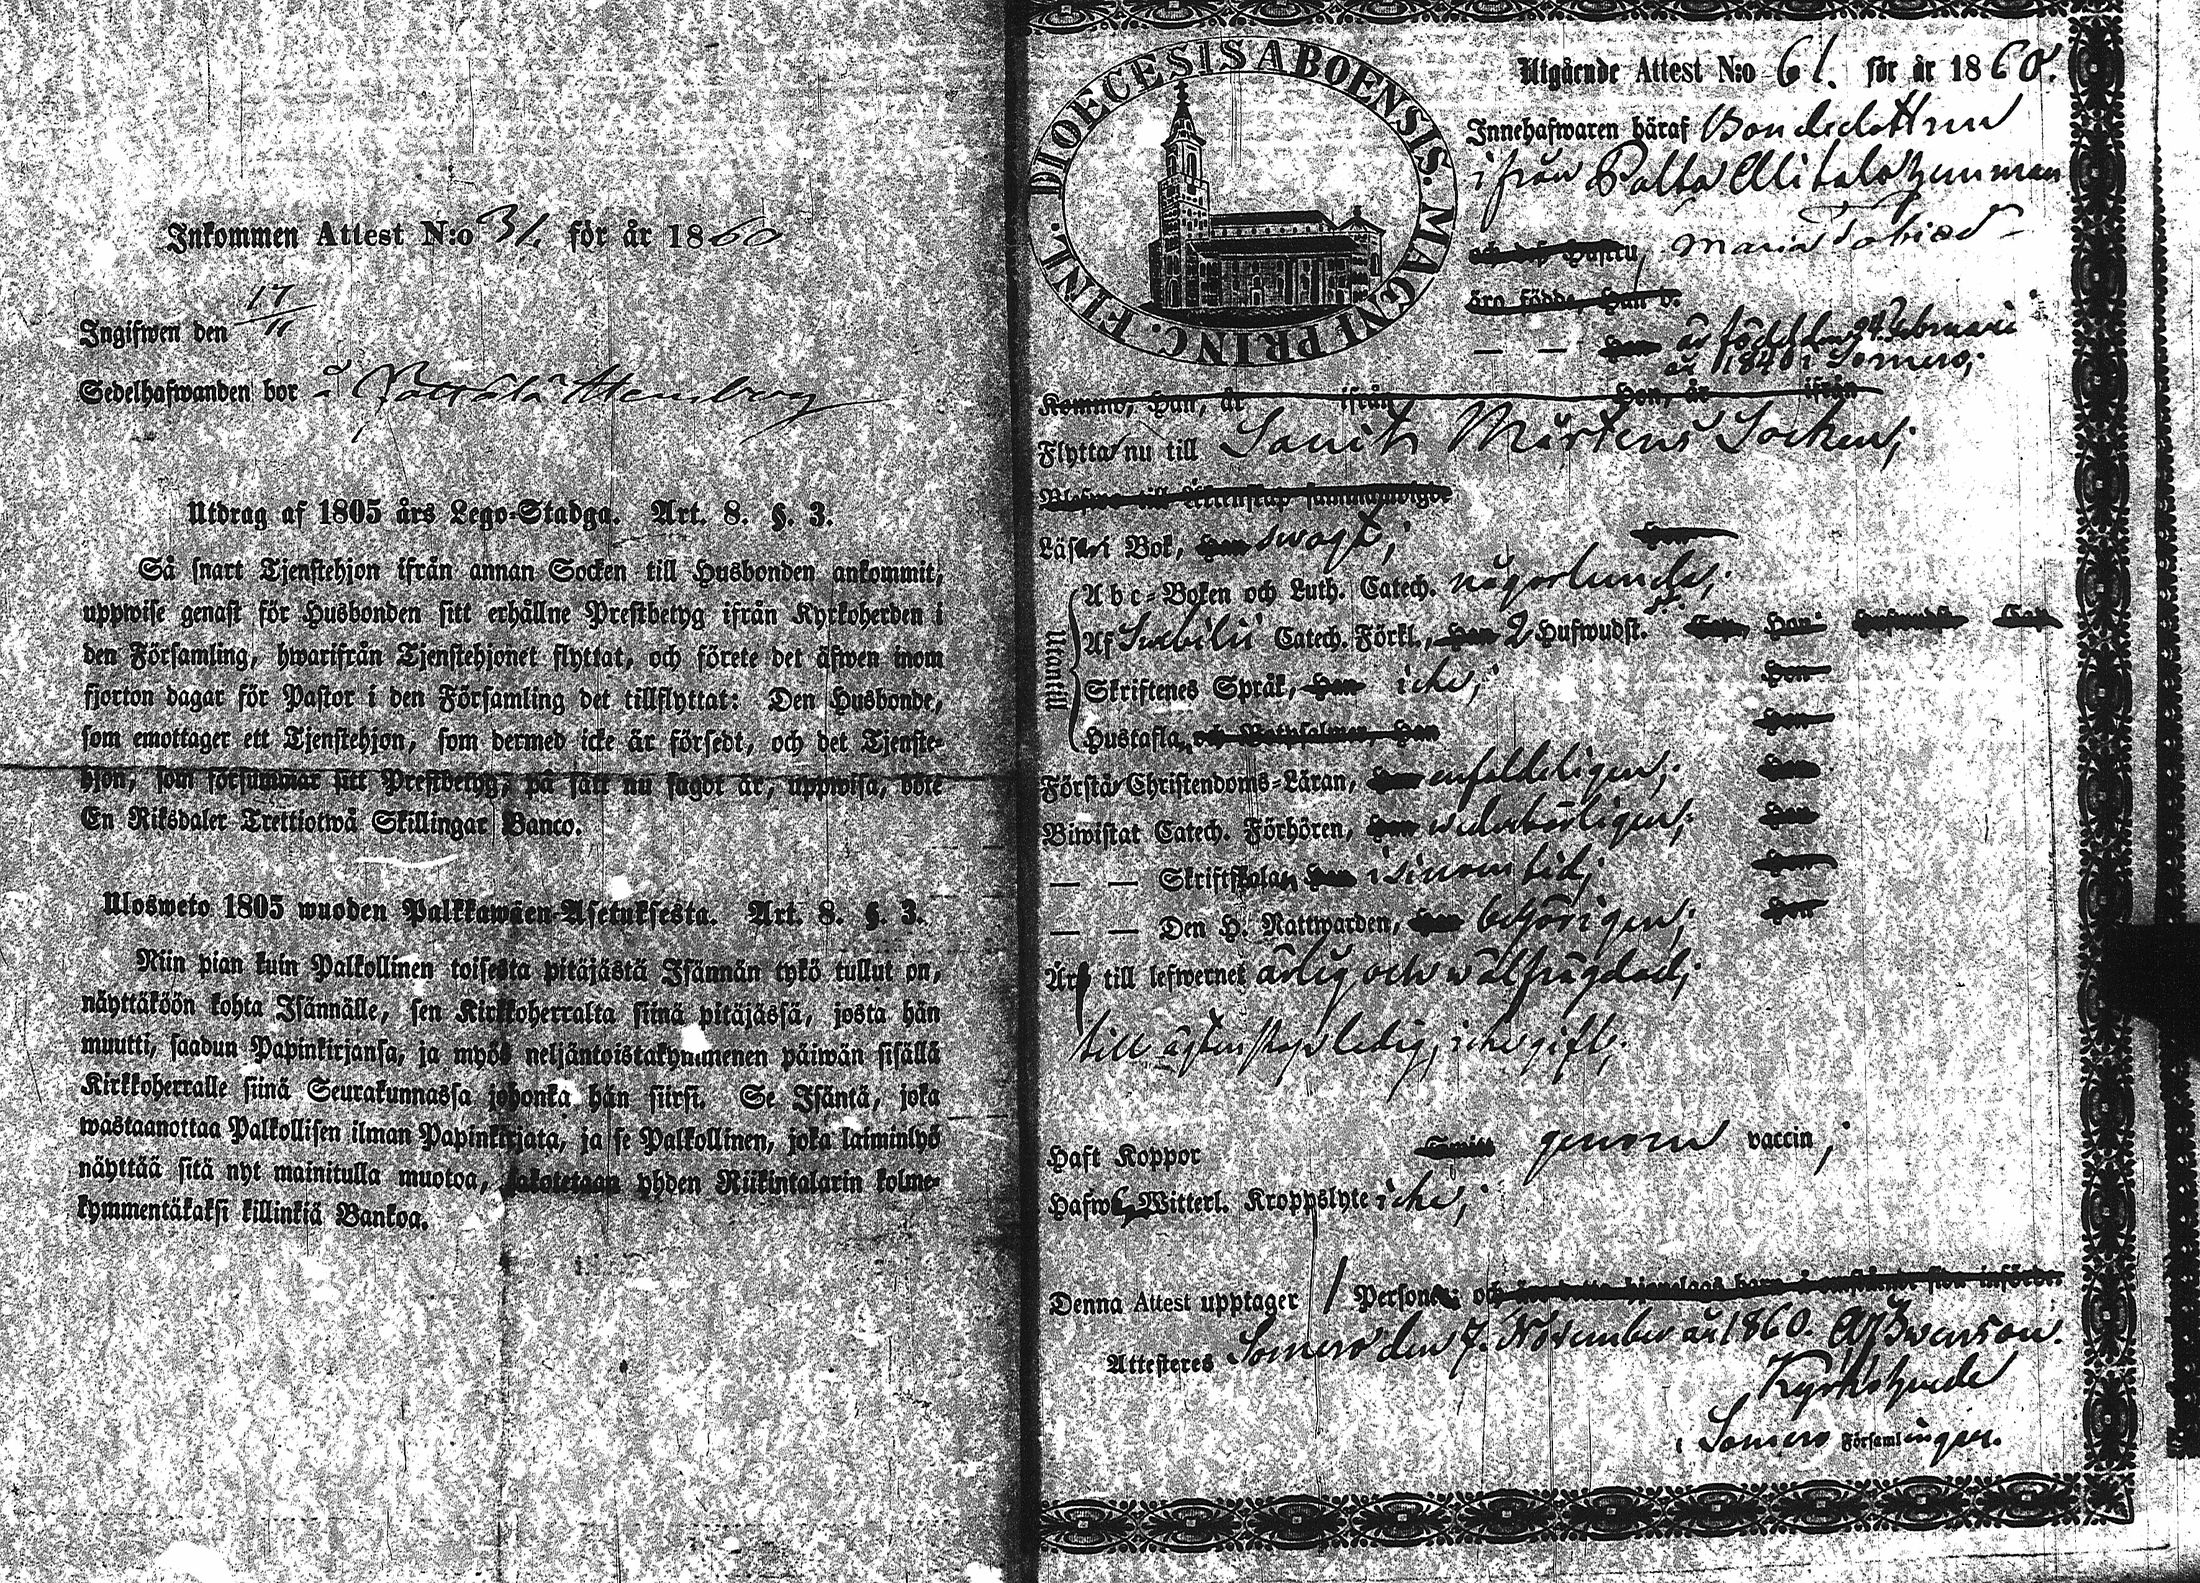 Inkommen Attest N:o 31. för år 1860
Ingifwen den 17/11
Sedelhafwanden bor å
Utdrag af 1805 års Lego-Stadga. Art. 8. §. 3.
Så snart Tjenstehjon ifrån annan Socken till Husbonden ankommit,
uppwise genast för Husbonden sitt erhållne Prestbetyg ifrån Kyrkoherden i
den Församling, hwarifrån Tjenstehjonet flyttat, och förete det äfwen inom
fjorton dagar för Pastor i den Församling det tillflyttat: Den Husbonde,
som emottager ett Tjenstehjon, som dermed icke är försedt, och det Tjenste-
hjon, som försummar sitt Prestbetyg, på sätt nu sagdt är, uppwisa, böte
En Riksdaler Trettiotwå Skillingar Banco.
Ulosweto 1805 wuoden Palkkawäen-Asetuksesta. Art. 8. §. 3.
Niin pian kuin Palkollinen toisesta pitäjästä Isännän tykö tullut on,
näyttäköön kohta Isännälle, sen Kirkkoherralta siinä pitäjässä, josta hän
muutti, saadun Papinkirjansa, ja myös neljäntoistakymmenen päiwän sisällä
Kirkkoherralle siinä Seurakunnassa johonka hän siirsi. Se Isäntä, joka
wastaanottaa Palkollisen ilman Papinkirjata, ja se Palkollinen, joka laiminlyö
näyttää sitä nyt mainitulla muotoa, sakotetaan yhden Riikintalarin kolme-
kymmentäkaksi killinkiä Bankoa.
DIOECESIS ABOENSIS. MAGNI PRINC. FINL.
Utgående Attest N:o 61. för år 1860.
Innehafwaren häraf Bondedottren
ifrån Palta Alitalo hemman
och dess Hustru, Maria Tobiasd
äro födde, Han d.
— — Hon är född den 24 Februarii
år 1840 i Somero;
Kommo, Han, år ifrån Hon, år ifrån
Flyttar nu till Sanct Mårtens Socken;
Blefwo till Äktenskap sammanwigde
Läser i Bok, Han swagt; Hon
Utantill
Abc-Boken och Luth. Catech. någorlunda;
Af Swebilii Catech. Förkl., Han 2 Hufwudst. Cap. Hon Hufwudst. Cap.
Skriftenes Språk, Han icke; Hon
Hustafla, och Botpsalmer, Han Hon
Förstår Christendoms-Läran, Han enfaldeligen; Hon
Biwistat Catech. Förhören, Han wederbörligen; Hon
— — Skriftskolan, Han i sinom tid; Hon
— — Den H. Nattwarden, Han behörigen; Hon
Är till lefwernet ärlig och wälfrägdad;
till ägtenskap ledig, icke gift;
Haft Koppor Smitt genom vaccin;
Hafwer Witterl. Kroppslyte icke;
Denna Attest upptager 1 Person; och
Attesteres Somero den 7. November år 1860.
Kyrkoherde
i Somero Församlingen.